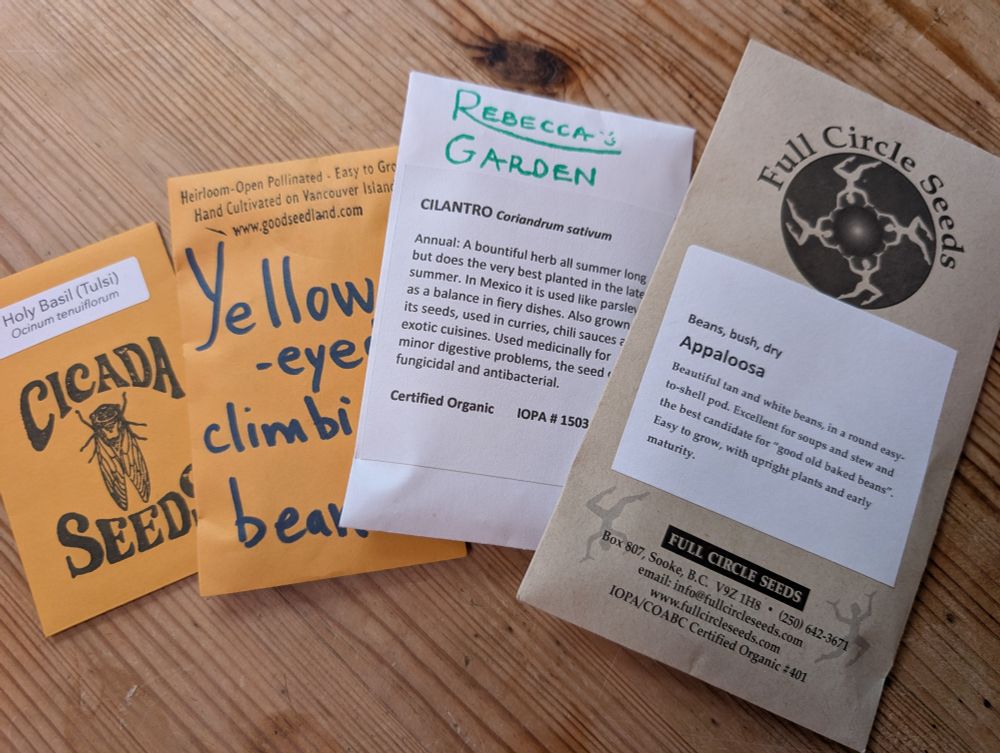 Holy Basil (Tulsi)
Ocinum tenuiflorum
CICADA
SEEDS
Heirloom-Open Pollinated - Easy to Gro
Hand Cultivated on Vancouver Island
www.goodseedland.com
Yellow
-eye
climbi
bean
REBECCA'S
GARDEN
CILANTRO Coriandrum sativum
Annual: A bountiful herb all summer long
but does the very best planted in the late
summer. In Mexico it is used like parsley
as a balance in fiery dishes. Also grown
its seeds, used in curries, chili sauces a
exotic cuisines. Used medicinally for
minor digestive problems, the seed
fungicidal and antibacterial.
Certified Organic IOPA # 1503
Full Circle Seeds
Beans, bush, dry
Appaloosa
Beautiful tan and white beans, in a round easy-
to-shell pod. Excellent for soups and stew and
the best candidate for "good old baked beans".
Easy to grow, with upright plants and early
maturity.
FULL CIRCLE SEEDS
Box 807, Sooke, B.C. V9Z 1H8 • (250) 642-3671
email: info@fullcircleseeds.com
www.fullcircleseeds.com
IOPA/COABC Certified Organic #401